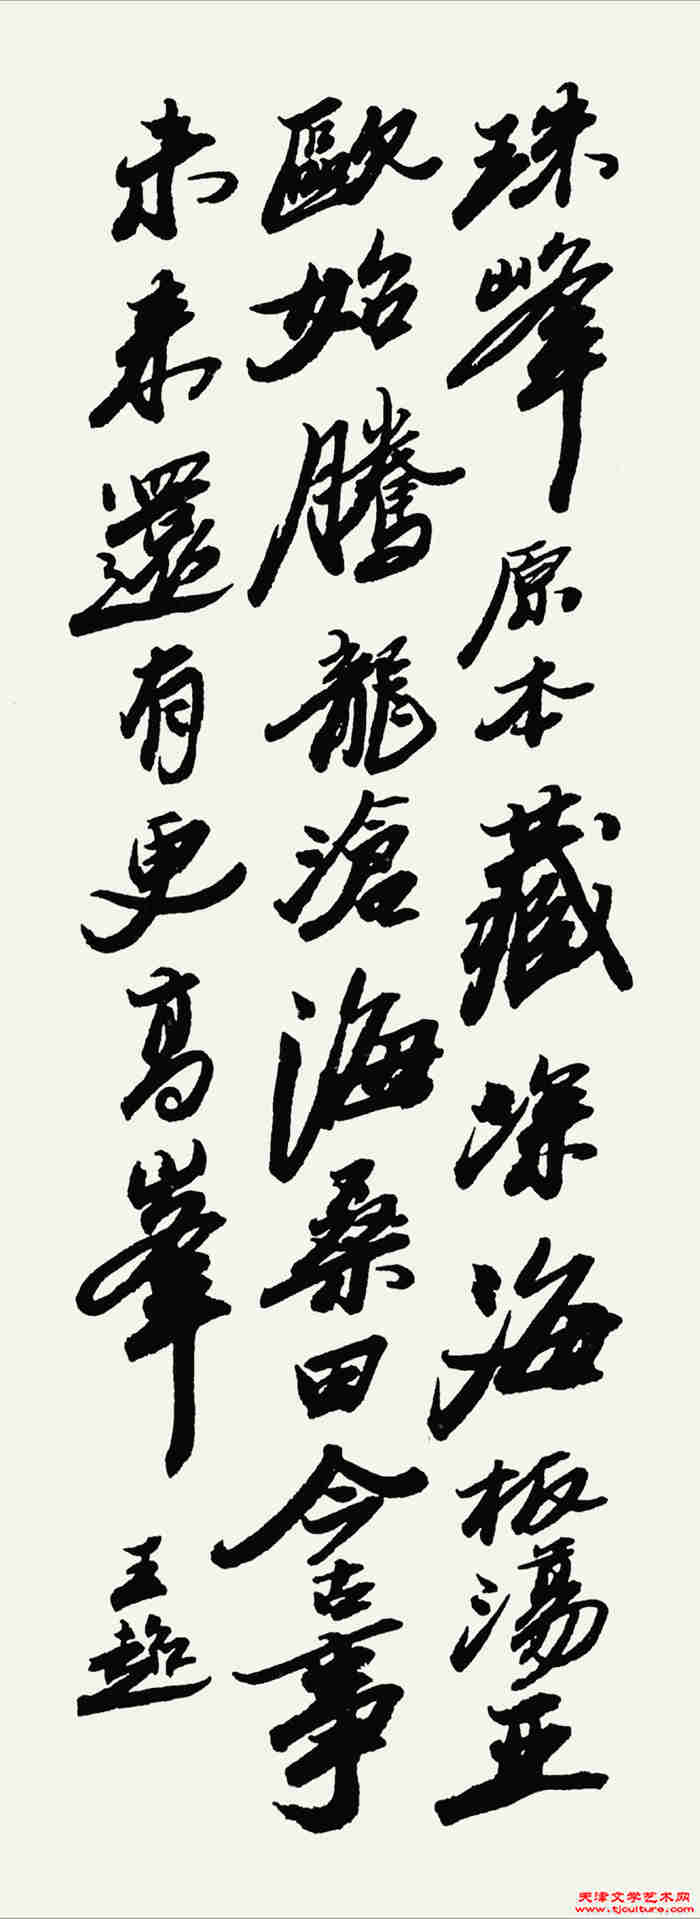 珠峰原本藏深海板荡亚
歐始騰龍滄海桑田今古事
未来還有更高峯
王超
天津文学艺术网
www.tjculture.com